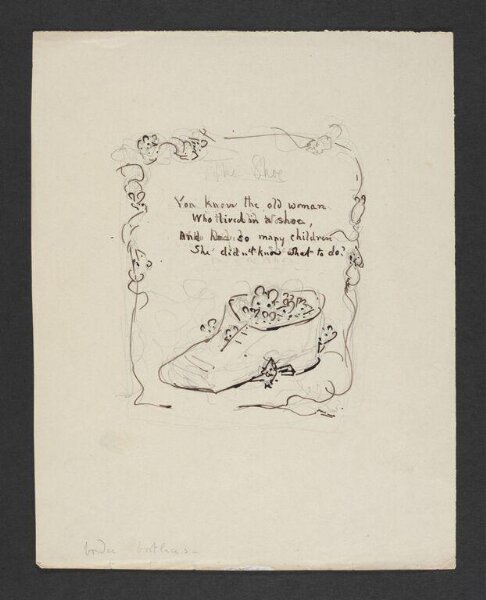 The Shoe
You know the old woman
Who lived in a shoe,
And had so many children
She didn't know what to do?